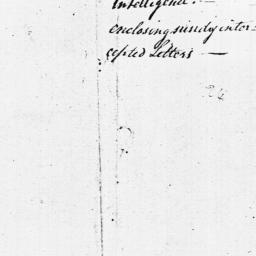 Intelligence. —
enclosing sundry inter=
cepted Letters —